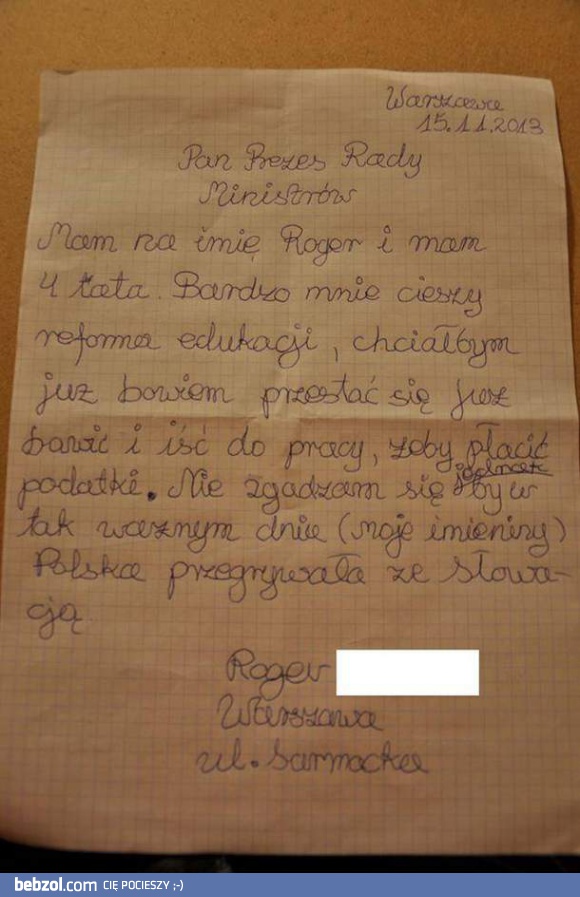 Warszawa
15.11.2013
Pan Prezes Rady
Ministrów
Mam na imię Roger i mam
4 lata. Bardzo mnie cieszy
reforma edukacji, chciałbym
już bowiem przestać się już
bawić i iść do pracy, żeby płacić
jednak
podatki. Nie zgadzam się by w
tak ważnym dniu (moje imieniny)
Polska przegrywała ze Słowa-
cją
Roger
Warszawa
ul. Sarmacka
bebzol.com CIĘ POCIESZY ;-)